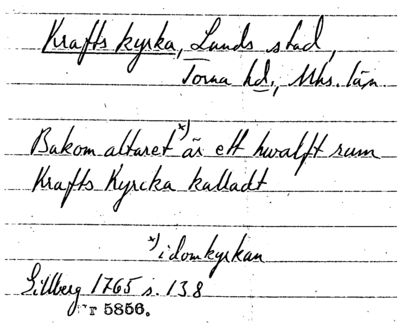 Krafts kyrka, Lunds stad,
Torna hd., Mhs. län
Bakom altaret x) är ett hwalft rum
Krafts Kyrcka kalladt
x) i domkyrkan
Gillberg 1765 s. 138
r 5856.